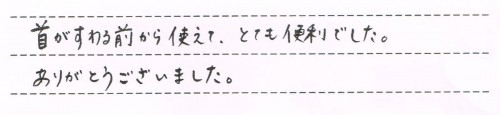 首がすわる前から使えて、とても便利でした。
ありがとうございました。